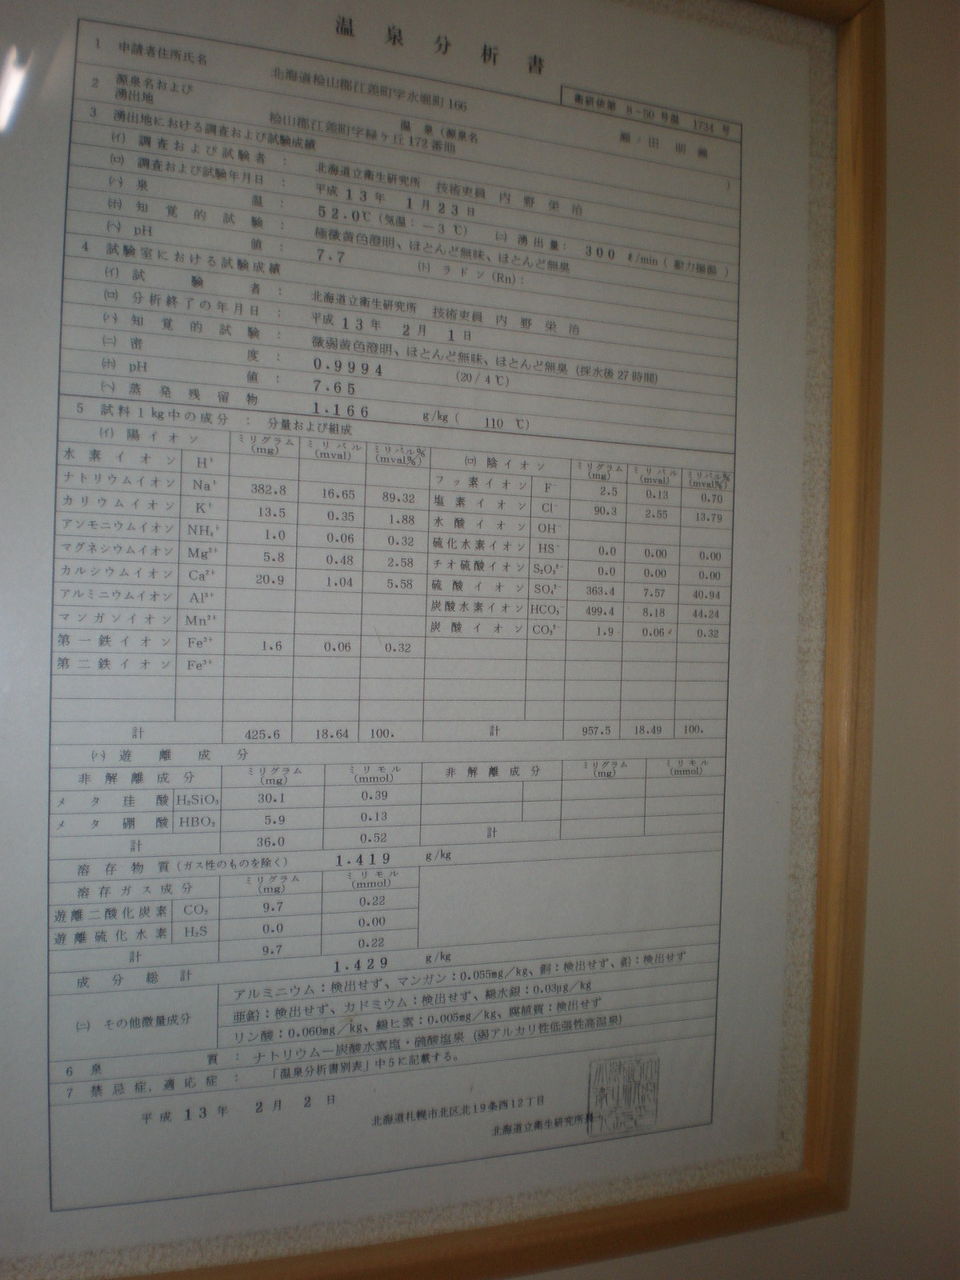 温泉分析書
衛研依第 8-50 号温 1734 号
1 申請者住所氏名 北海道桧山郡江差町字水堀町166
2 源泉名および湧出地 温泉(源泉名 )
桧山郡江差町字緑ヶ丘172番地
3 湧出地における調査および試験成績
(イ) 調査および試験者： 北海道立衛生研究所 技術吏員 内野栄治
(ロ) 調査および試験年月日： 平成13年 1月23日
(ハ) 泉温： 52.0℃ (気温：-3℃) (ニ) 湧出量： 300 ℓ/min (動力揚湯)
(ホ) 知覚的試験： 極微黄色澄明、ほとんど無味、ほとんど無臭
(ヘ) pH値： 7.7 (ト) ラドン(Rn)：
4 試験室における試験成績
(イ) 試験者： 北海道立衛生研究所 技術吏員 内野栄治
(ロ) 分析終了の年月日： 平成13年 2月 1日
(ハ) 知覚的試験： 微弱黄色澄明、ほとんど無味、ほとんど無臭 (採水後27時間)
(ニ) 密度： 0.9994 (20/4℃)
(ホ) pH値： 7.65
(ヘ) 蒸発残留物 1.166 g/kg ( 110 ℃)
5 試料1kg中の成分： 分量および組成
(イ) 陽イオン ミリグラム(mg) ミリバル(mval) ミリバル%(mval%) (ロ) 陰イオン ミリグラム(mg) ミリバル(mval) ミリバル%(mval%)
水素イオン H⁺ フッ素イオン F⁻ 2.5 0.13 0.70
ナトリウムイオン Na⁺ 382.8 16.65 89.32 塩素イオン Cl⁻ 90.3 2.55 13.79
カリウムイオン K⁺ 13.5 0.35 1.88 水酸イオン OH⁻
アンモニウムイオン NH₄⁺ 1.0 0.06 0.32 硫化水素イオン HS⁻ 0.0 0.00 0.00
マグネシウムイオン Mg²⁺ 5.8 0.48 2.58 チオ硫酸イオン S₂O₃²⁻ 0.0 0.00 0.00
カルシウムイオン Ca²⁺ 20.9 1.04 5.58 硫酸イオン SO₄²⁻ 363.4 7.57 40.94
アルミニウムイオン Al³⁺ 炭酸水素イオン HCO₃⁻ 499.4 8.18 44.24
マンガンイオン Mn²⁺ 炭酸イオン CO₃²⁻ 1.9 0.06 0.32
第一鉄イオン Fe²⁺ 1.6 0.06 0.32
第二鉄イオン Fe³⁺
計 425.6 18.64 100. 計 957.5 18.49 100.
(ハ) 遊離成分
非解離成分 ミリグラム(mg) ミリモル(mmol) 非解離成分 ミリグラム(mg) ミリモル(mmol)
メタ珪酸 H₂SiO₃ 30.1 0.39
メタ硼酸 HBO₂ 5.9 0.13
計 36.0 0.52 計
溶存物質(ガス性のものを除く) 1.419 g/kg
溶存ガス成分 ミリグラム(mg) ミリモル(mmol)
遊離二酸化炭素 CO₂ 9.7 0.22
遊離硫化水素 H₂S 0.0 0.00
計 9.7 0.22
成分総計 1.429 g/kg
(ニ) その他微量成分 アルミニウム：検出せず、マンガン：0.055mg/kg、銅：検出せず、鉛：検出せず
亜鉛：検出せず、カドミウム：検出せず、総水銀：0.03μg/kg
リン酸：0.060mg/kg、総ヒ素：0.005mg/kg、腐植質：検出せず
6 泉質： ナトリウム-炭酸水素塩・硫酸塩泉 (弱アルカリ性低張性高温泉)
7 禁忌症，適応症： 「温泉分析書別表」中5に記載する。
平成13年 2月 2日
北海道札幌市北区北19条西12丁目
北海道立衛生研究所長